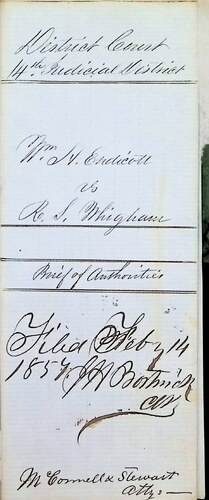 District Court
14th Judicial District
Wm H. Endicott
vs
R. S. Whigham
Brief of Authorities
Filed Feby 14
1857. J H Bostwick
Clk
McConnell & Stewart
Attys